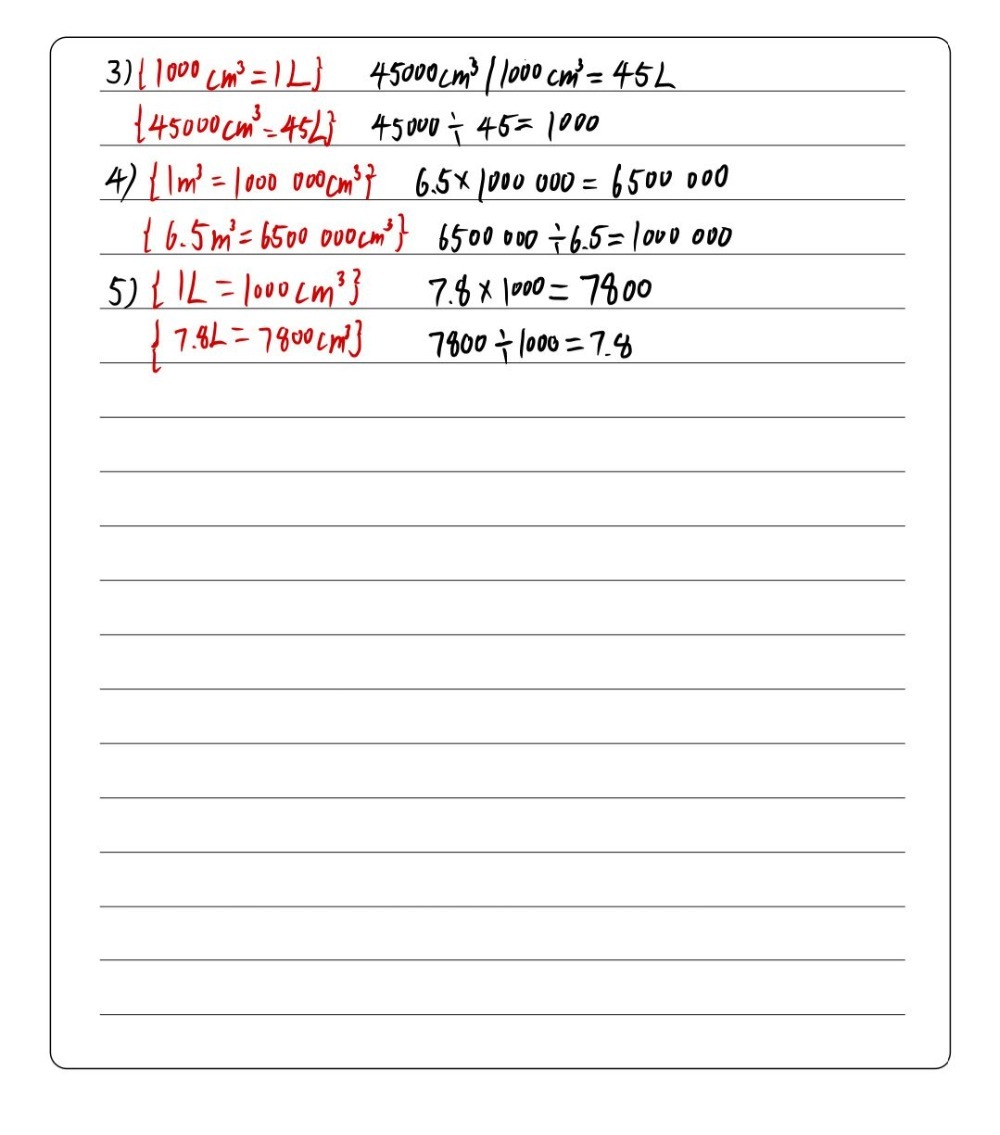 3) {1000 cm³ = 1L} 45000cm³ / 1000 cm³ = 45L
{45000cm³ = 45L} 45000 ÷ 45 = 1000
4) {1m³ = 1000 000cm³} 6.5 × 1000 000 = 6500 000
{6.5m³ = 6500 000cm³} 6500 000 ÷ 6.5 = 1000 000
5) {1L = 1000cm³} 7.8 × 1000 = 7800
{7.8L = 7800cm³} 7800 ÷ 1000 = 7.8